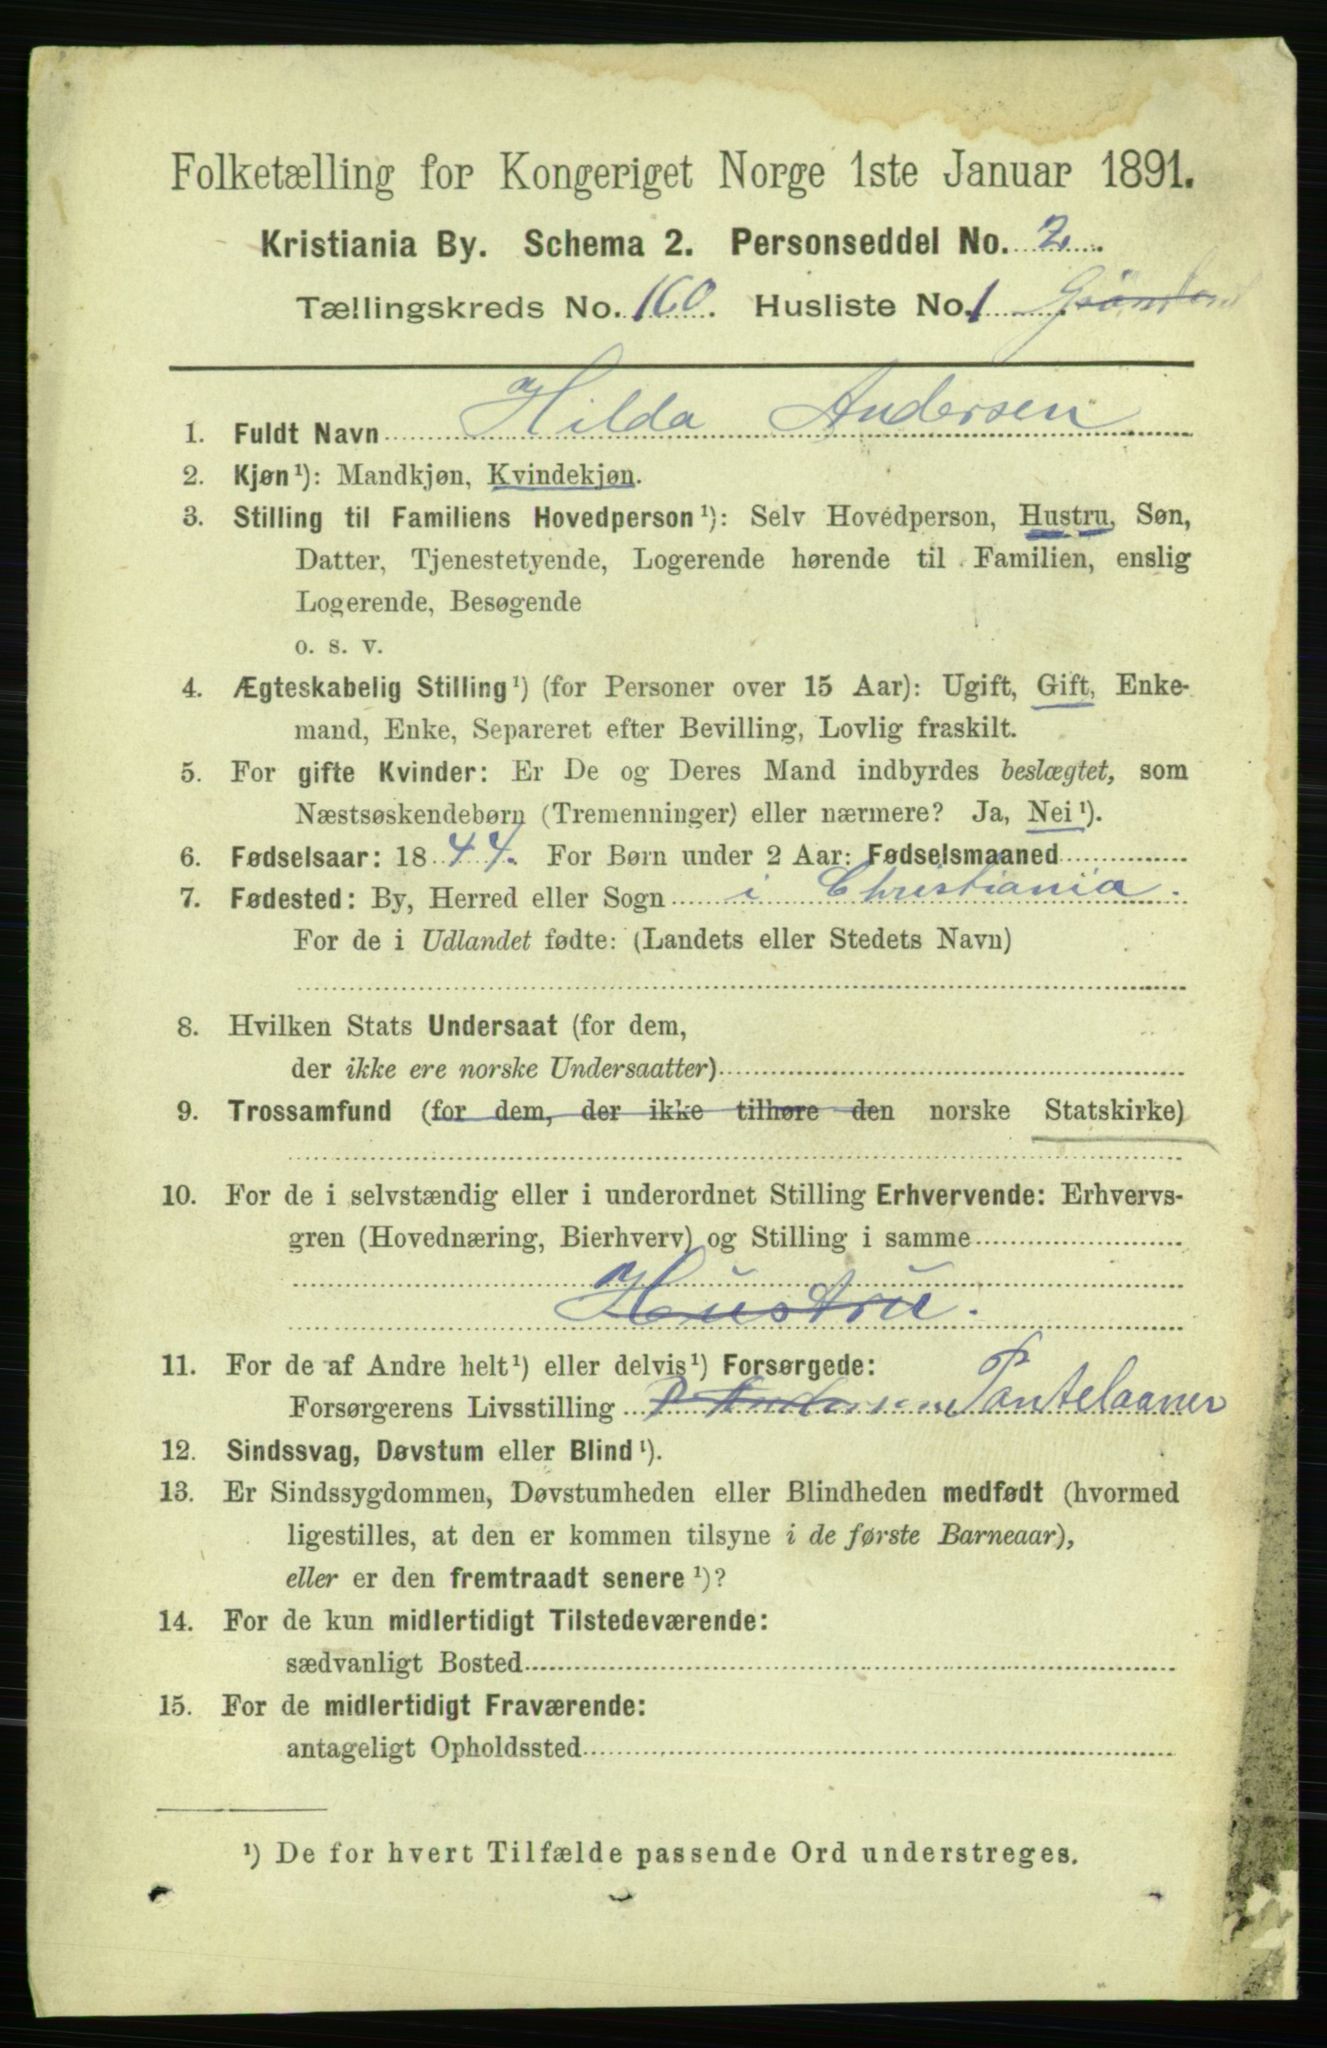 Folketælling for Kongeriget Norge 1ste Januar 1891.
Kristiania By. Schema 2. Personseddel No. 2.
Tællingskreds No. 160. Husliste No. 1
1. Fuldt Navn Hilda Andersen
2. Kjøn¹): Mandkjøn, Kvindekjøn.
3. Stilling til Familiens Hovedperson¹): Selv Hovedperson, Hustru, Søn,
Datter, Tjenestetyende, Logerende hørende til Familien, enslig
Logerende, Besøgende
o. s. v.
4. Ægteskabelig Stilling¹) (for Personer over 15 Aar): Ugift, Gift, Enke-
mand, Enke, Separeret efter Bevilling, Lovlig fraskilt.
5. For gifte Kvinder: Er De og Deres Mand indbyrdes beslægtet, som
Næstsøskendebørn (Tremenninger) eller nærmere? Ja, Nei¹).
6. Fødselsaar: 1844. For Børn under 2 Aar: Fødselsmaaned
7. Fødested: By, Herred eller Sogn i Christiania.
For de i Udlandet fødte: (Landets eller Stedets Navn)
8. Hvilken Stats Undersaat (for dem,
der ikke ere norske Undersaatter)
9. Trossamfund (for dem, der ikke tilhøre den norske Statskirke)
10. For de i selvstændig eller i underordnet Stilling Erhvervende: Erhvervs-
gren (Hovednæring, Bierhverv) og Stilling i samme
Hustru.
11. For de af Andre helt¹) eller delvis¹) Forsørgede:
Forsørgerens Livsstilling P Andersen Pantelaaner
12. Sindssvag, Døvstum eller Blind¹).
13. Er Sindssygdommen, Døvstumheden eller Blindheden medfødt (hvormed
ligestilles, at den er kommen tilsyne i de første Barneaar),
eller er den fremtraadt senere¹)?
14. For de kun midlertidigt Tilstedeværende:
sædvanligt Bosted
15. For de midlertidigt Fraværende:
antageligt Opholdssted
¹) De for hvert Tilfælde passende Ord understreges.